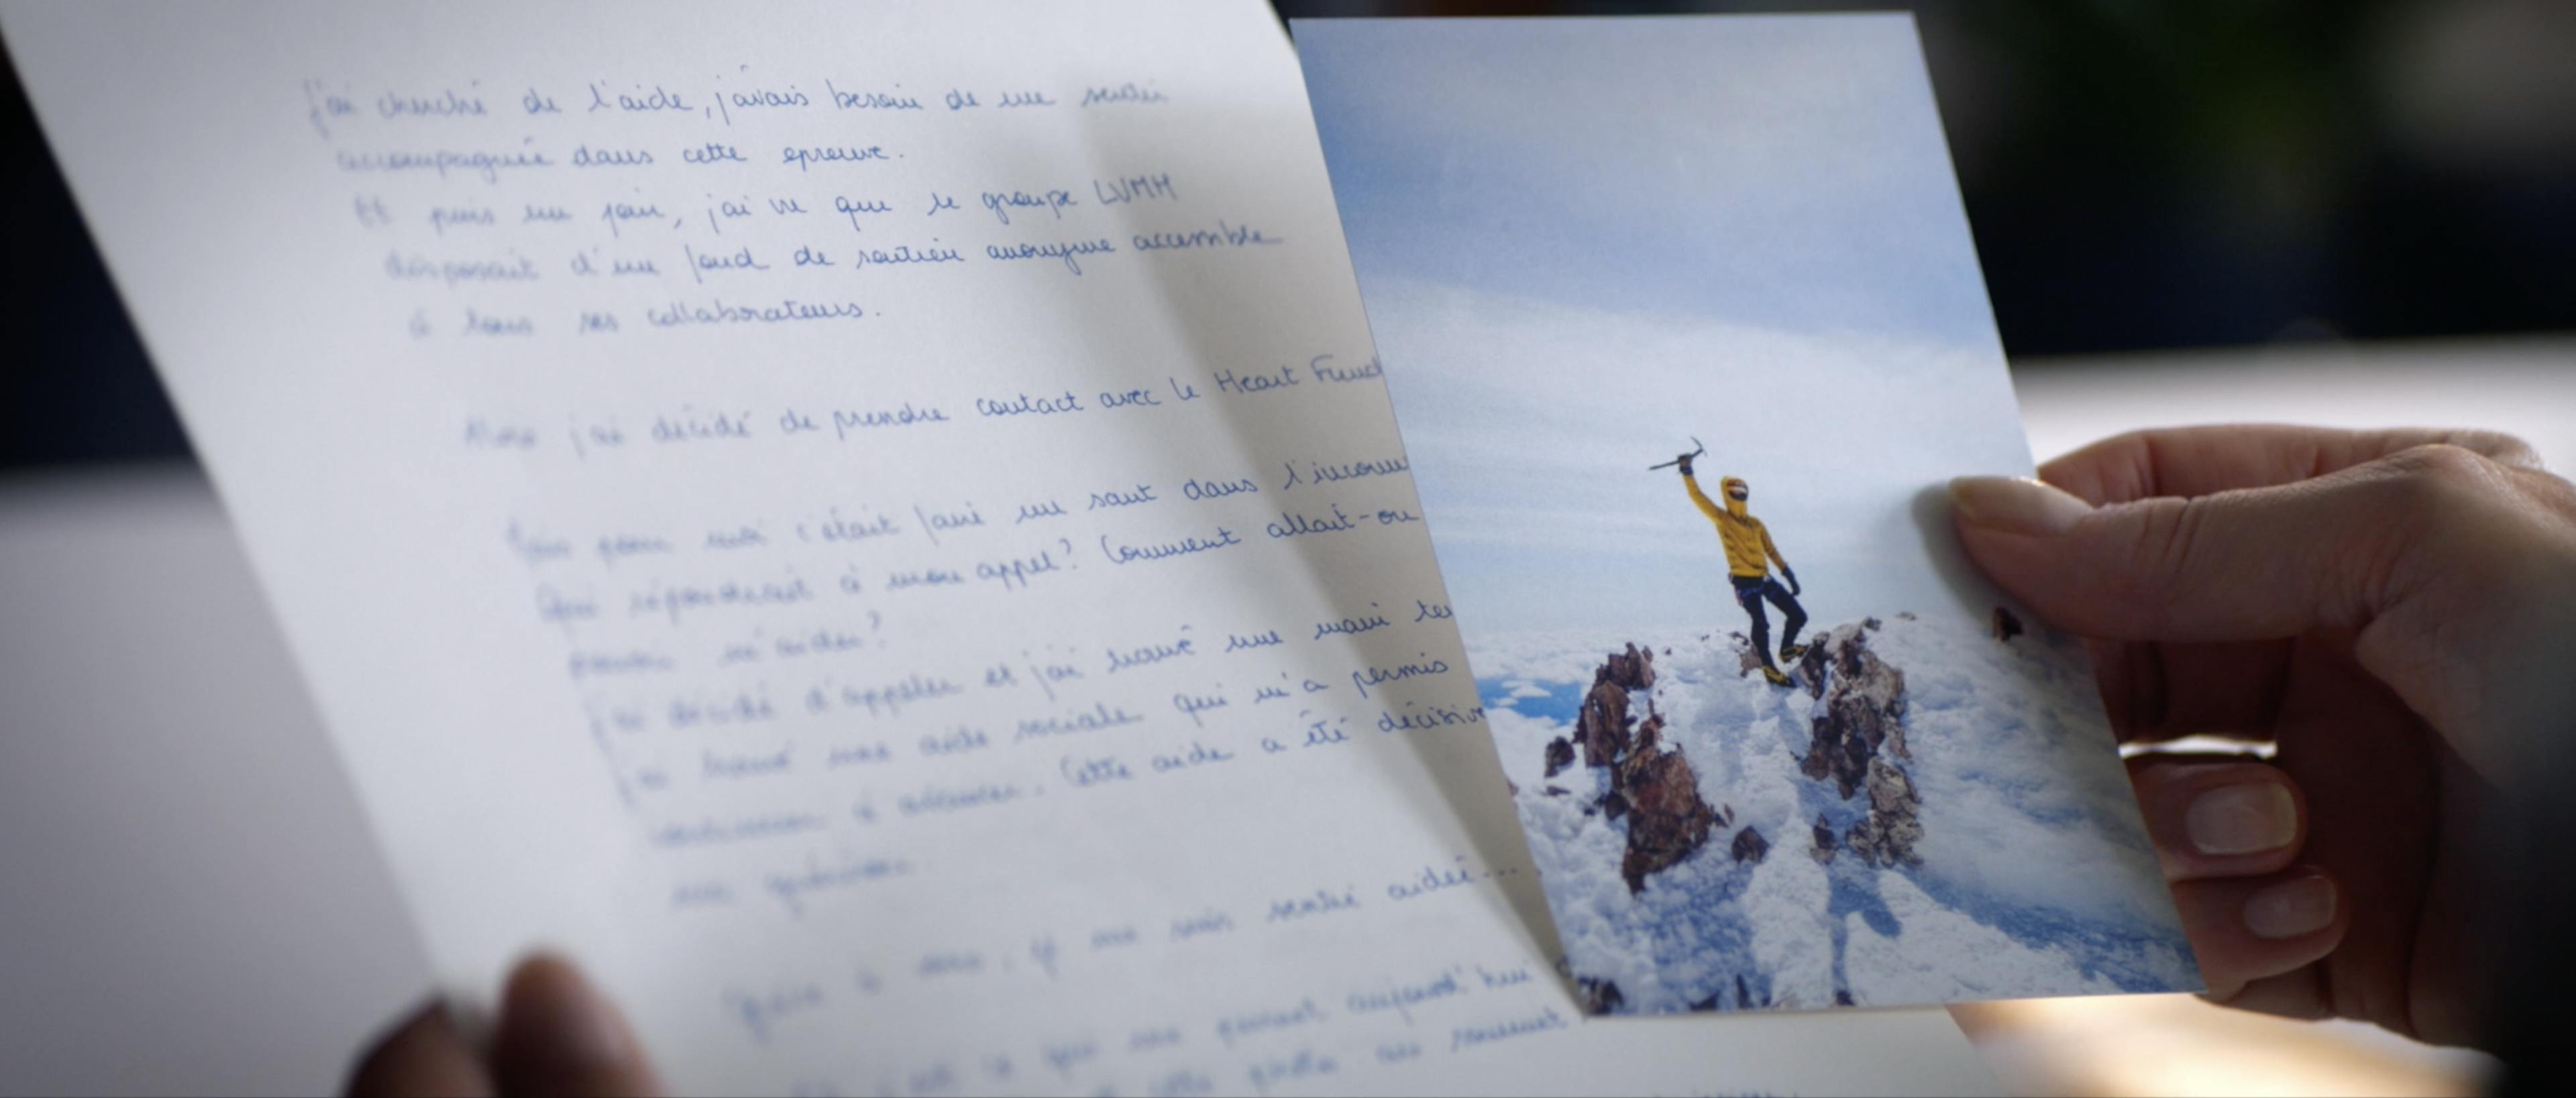 J'ai cherché de l'aide, j'avais besoin de me sentir
accompagnée dans cette épreuve.
Et puis un jour, j'ai vu que le groupe LVMH
disposait d'un fond de soutien anonyme accessible
à tous ses collaborateurs.
Alors j'ai décidé de prendre contact avec le Heart Fund
pour moi c'était faire un saut dans l'inconnu
Qui répondrait à mon appel? Comment allait-on
pouvoir m'aider?
ai décidé d'appeler et j'ai trouvé une main
ai trouvé une aide sociale qui m'a permis
à avancer. Cette aide a été décisive
ma guérison.
Grâce à vous, je me suis sentie aidée...
c'est ce qui me permet aujourd'hui
cette photo au sommet